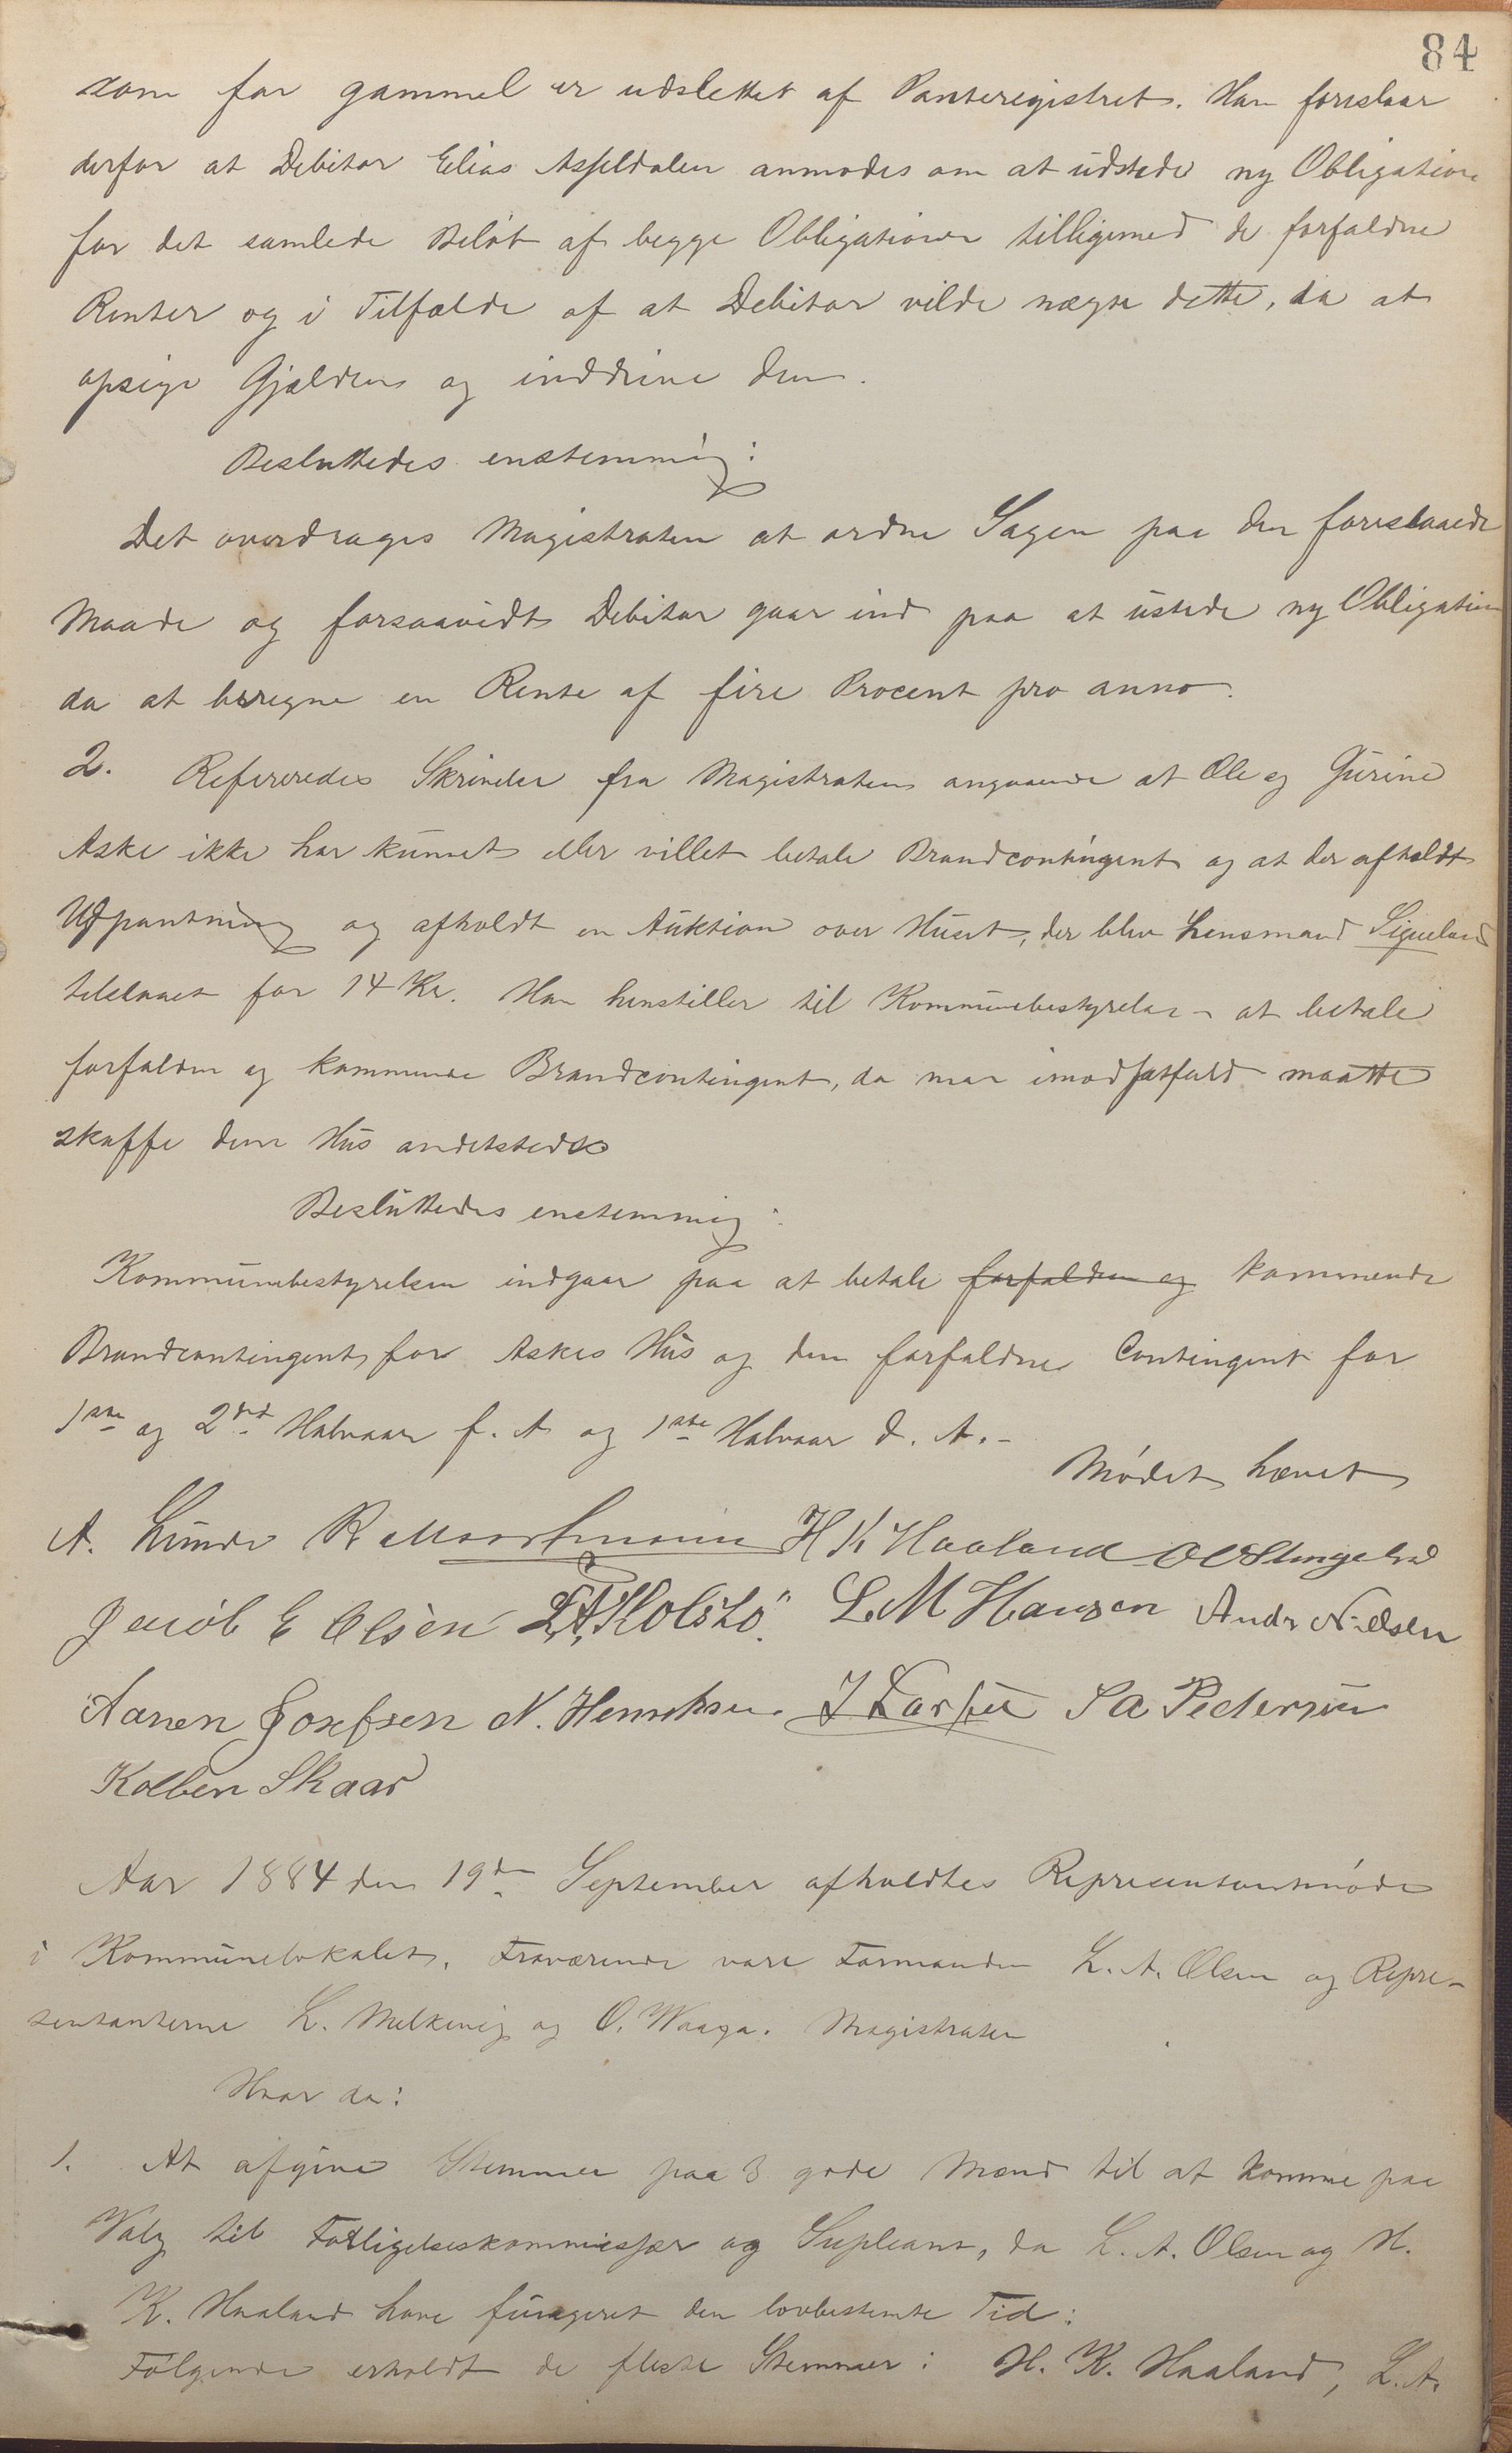 84
som for gammel er udslettet af Panteregistret. Han foreslaar
derfor at Debitor Elias Asfeldalen anmodes om at udstede ny Obligation
for det samlede Beløb af begge Obligationer tilligemed de forfaldne
Renter og i Tilfælde af at Debitor vilde nægte dette, da at
opsige Gjælden og inddrive den.
Besluttedes enstemmig:
Det overdrages Magistraten at ordne Sagen paa den foreslaaede
Maade og forsaavidt Debitor gaar ind paa at ustede ny Obligation
da at beregne en Rente af fire Procent pro anno.
2. Refereredes Skrivelse fra Magistraten angaaende at Ole og Gurine
Aske ikke har kunnet eller villet betale Brandcontingent og at der afholdt
Udpantning og afholdt en Auktion over Huset, der blev Lensmand Sigueland
tilslaaet for 14 Kr. Han henstiller til Kommunebestyrelsen at betale
forfalden og kommende Brandcontingent, da man imodsatfald maatte
skaffe dem Hus andetsteds
Besluttedes enstemmig:
Kommunebestyrelsen indgaar paa at betale forfalden og kommende
Brandcontingent for Askes Hus og den forfaldne Contingent for
1ste og 2det Halvaar f. A og 1ste Halvaar d. A. -
Mødet hævet
A. Lunde R H K Haaland
Jacob E Olsen L. A. Holstø. L. M Hansen Andr Nielsen
Aanen Josefsen N. Henrichsen. J Larsen S A Pedersen
Kolben Skaar
Aar 1884 den 19de September afholdtes Representantmøde
i Kommunelokalet. Fraværende vare Formanden L. A. Olsen og Repre-
sentanterne L. Melkevig og O. Waaga. Magistraten
Hvor da:
1. At afgive Stemmer paa 3 gode Mænd til at komme paa
Valg til Forligelseskommissær og Supleant, da L. A. Olsen og H.
K. Haaland have fungeret den lovbestemte Tid:
Følgende erholdt de fleste Stemmer: H. K. Haaland, L. A.